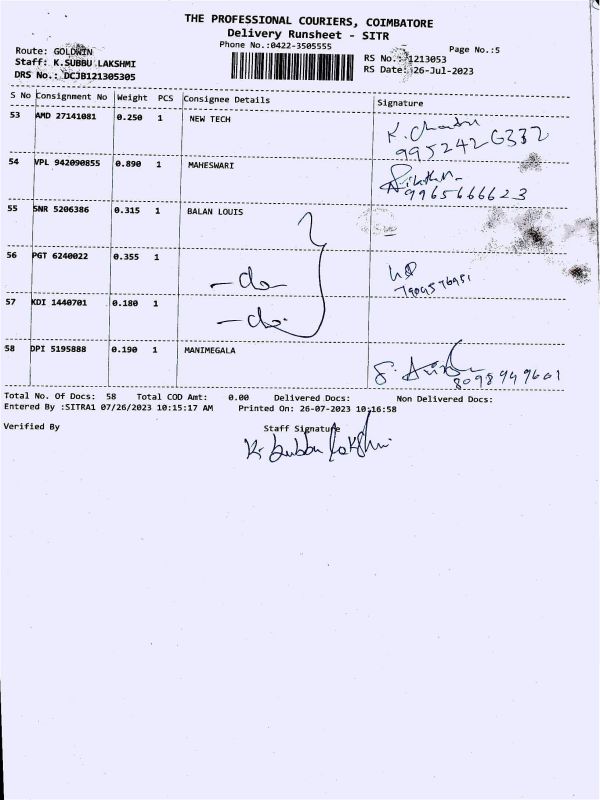 THE PROFESSIONAL COURIERS, COIMBATORE
Delivery Runsheet - SITR
Phone No.:0422-3505555
Page No.:5
Route: GOLDWIN
Staff: K.SUBBU LAKSHMI
DRS No.: DCJB121305305
RS No.: 1213053
RS Date: 26-Jul-2023
S No Consignment No Weight PCS Consignee Details Signature
53 AMD 27141081 0.250 1 NEW TECH
995242 6332
54 VPL 942090855 0.890 1 MAHESWARI
9965666623
55 SNR 5206386 0.315 1 BALAN LOUIS
56 PGT 6240022 0.355 1
- do -
57 KDI 1440701 0.180 1
- do -
58 DPI 5195888 0.190 1 MANIMEGALA
8098949601
Total No. Of Docs: 58 Total COD Amt: 0.00 Delivered Docs: Non Delivered Docs:
Entered By :SITRA1 07/26/2023 10:15:17 AM Printed On: 26-07-2023 10:16:58
Verified By Staff Signature
K. Subbu lakshmi